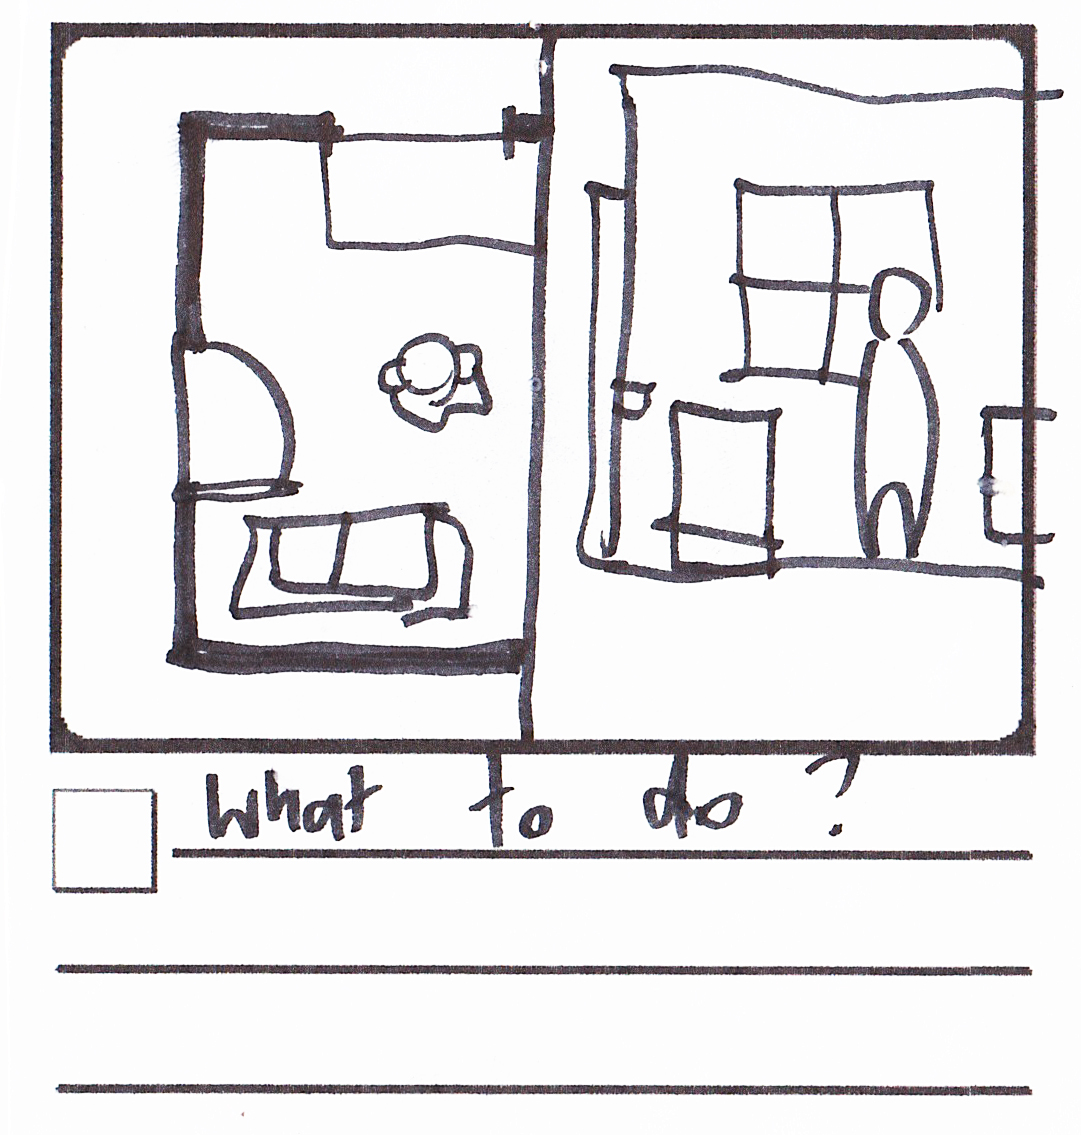 What to do ?